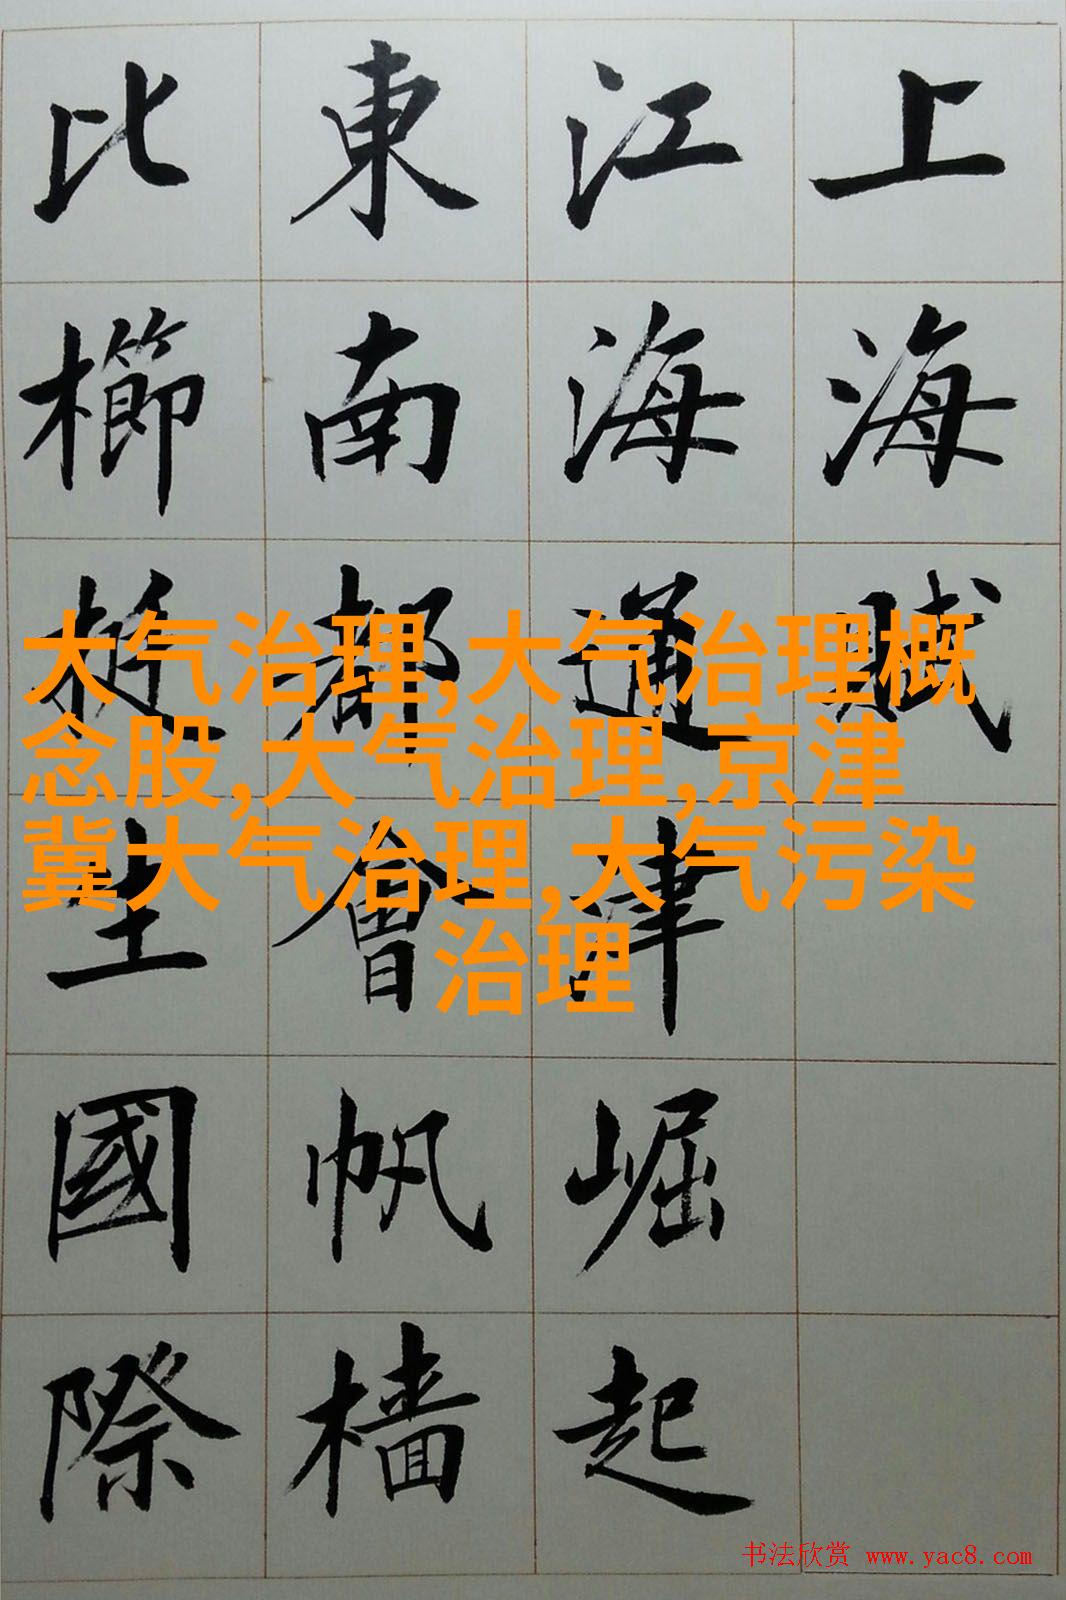 上海賦
江海通津崛起
東南都會帆樯
比櫛挺生國際
大气治理,大气治理概
念股,大气治理,京津
冀大气治理,大气污染
治理
书法欣赏 www.yac8.com